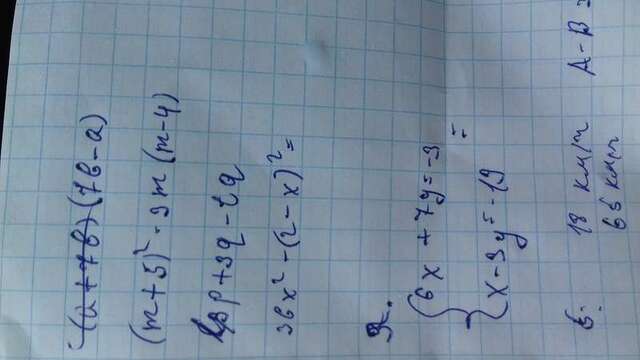 (a + 7b)(7b - a)
(m + 5)² - 3m (m - 4)
3p + 3q - tq
36x² - (2 - x)² =
2.
{ 6x + 7y = -3
x - 3y = -19 =
5: 18 км/ч A - B =
65 км/ч